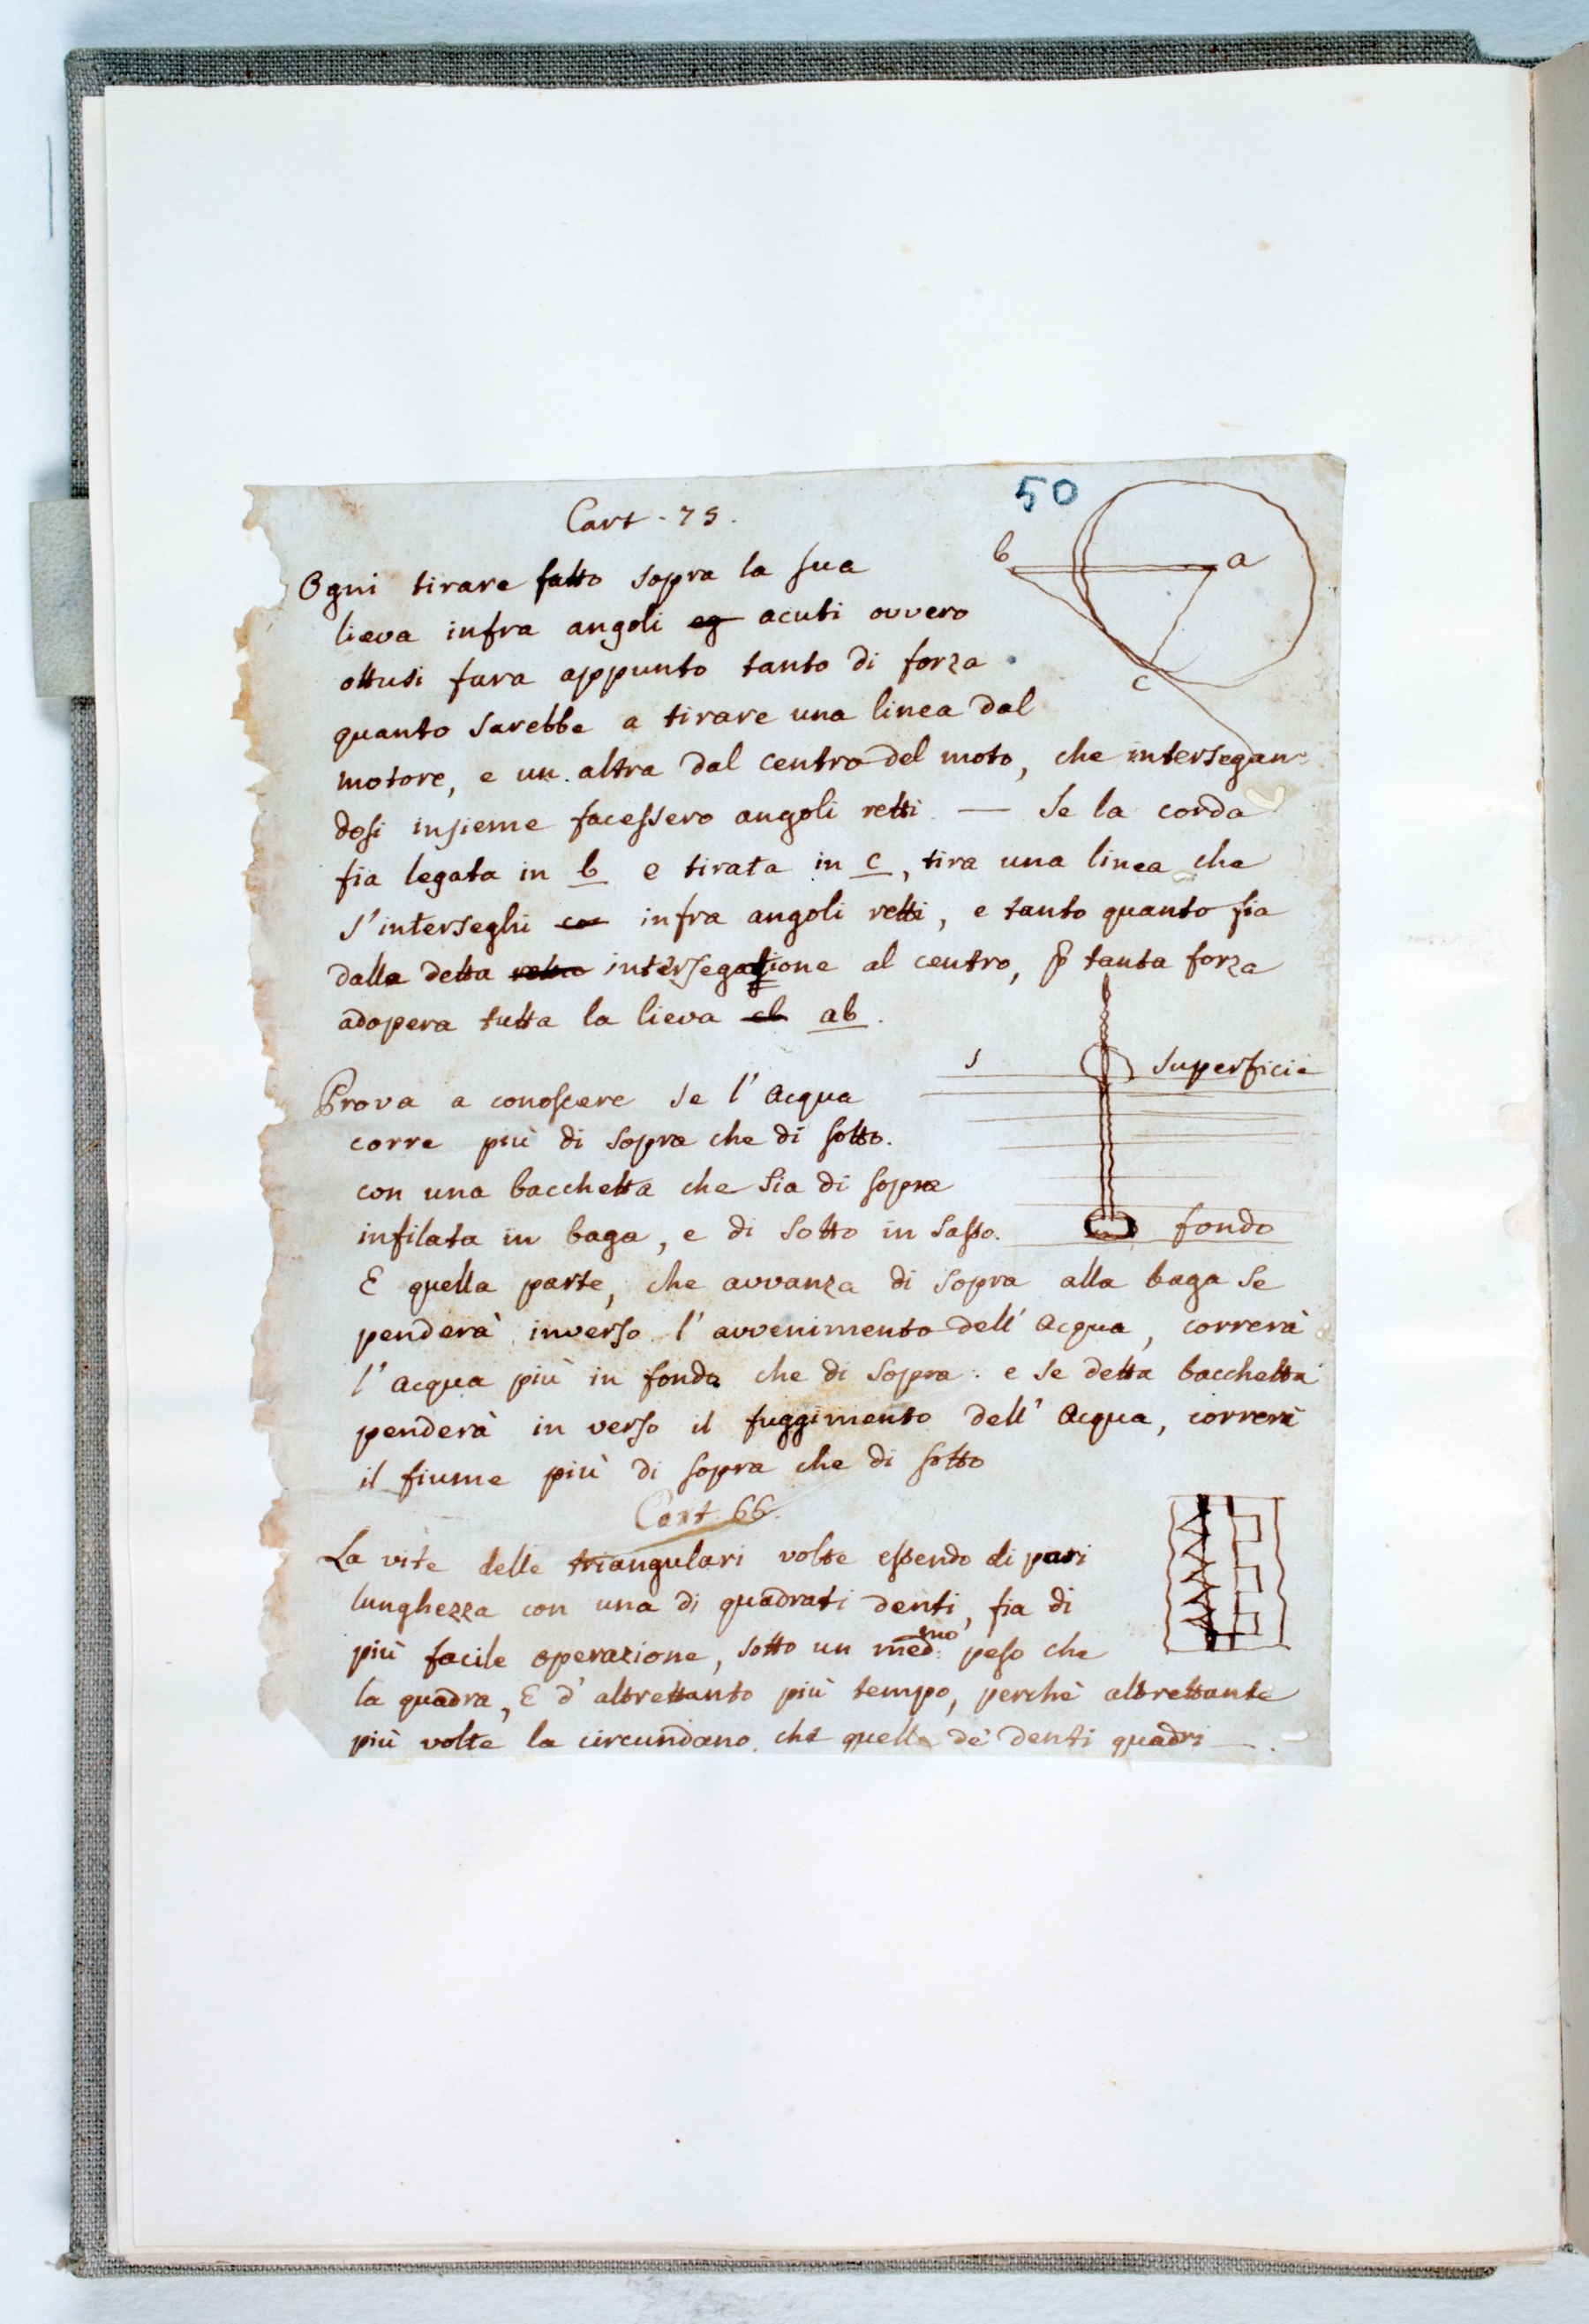 50
Cart. 75.
b
a
c
Ogni tirare fatto sopra la sua
lieva infra angoli eg acuti ovvero
ottusi fara appunto tanto di forza
quanto sarebbe a tirare una linea dal
motore, e un altra dal centro del moto, che intersegan-
dosi insieme facessero angoli retti — Se la corda
fia legata in b e tirata in c, tira una linea che
s'interseghi infra angoli retti, e tanto quanto fia
dalla detta intersegazione al centro, tanta forza
adopera tutta la lieva cb ab.
s superficie
Prova a conoscere se l'Acqua
corre più di sopra che di sotto.
con una bacchetta che sia di sopra
infilata in baga, e di sotto in sasso.
fondo
E quella parte, che avvanza di sopra alla baga se
penderà inverso l'avvenimento dell'Acqua, correrà
l'acqua più in fondo che di sopra: e se detta bacchetta
penderà in verso il fuggimento dell'Acqua, correrà
il fiume più di sopra che di sotto
Cart. 66.
La vite delle triangulari volte essendo di pari
lunghezza con una di quadrati denti, fia di
più facile operazione, sotto un med:smo peso che
la quadra, E d'altrettanto più tempo, perchè altrettante
più volte la circundano che quella de' denti quadri —.